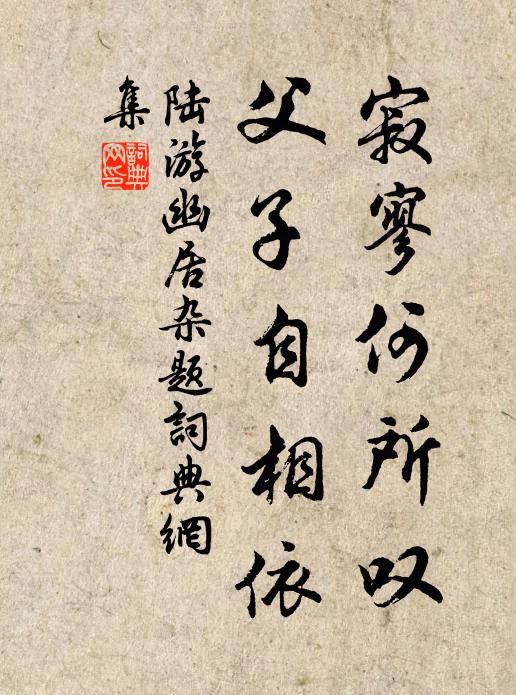 寂寥何所叹
父子自相依
陆游幽居杂题詞典網
集
詞典
网印